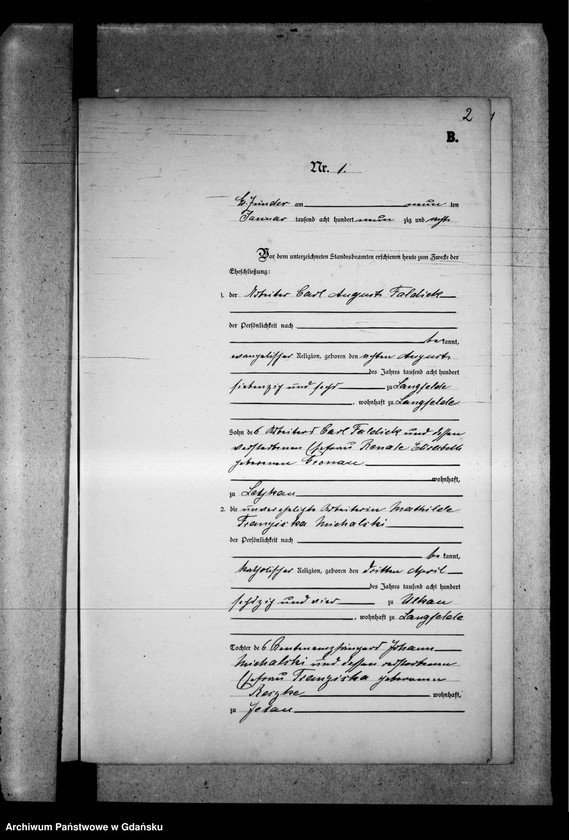 2
B.
Nr. 1.
Gr. Zünder am neun ten
Januar tausend acht hundert neun zig und acht
Vor dem unterzeichneten Standesbeamten erschienen heute zum Zwecke der
Eheschließung:
1. der Arbeiter Carl August Faldieck
der Persönlichkeit nach
be kannt,
evangelischer Religion, geboren den achten August
des Jahres tausend acht hundert
siebenzig und sechs zu Langfelde
, wohnhaft zu Langfelde
Sohn des Arbeiters Carl Faldieck und dessen
verstorbenen Ehefrau Renate Elisabeth
geborenen Cronau
wohnhaft,
zu Letzkau
2. die unverehelichte Arbeiterin Mathilde
Franziska Michalski
der Persönlichkeit nach
be kannt,
katholischer Religion, geboren den dritten April
des Jahres tausend acht hundert
sechszig und vier zu Uhkau
, wohnhaft zu Langfelde
Tochter des Rentenempfängers Johann
Michalski und dessen verstorbenen
Ehefrau Franziska geborenen
wohnhaft,
zu
Archiwum Państwowe w Gdańsku